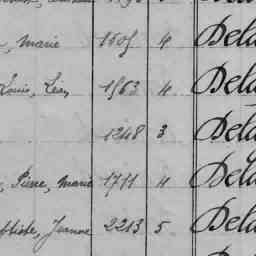 , Marie 1505 4 Dela
Louis, Léon 1563 4 Dela
1248 3 Dela
, Pierre, Marie 1711 4 Dela
ptiste, Jeanne 2213 5 Dela